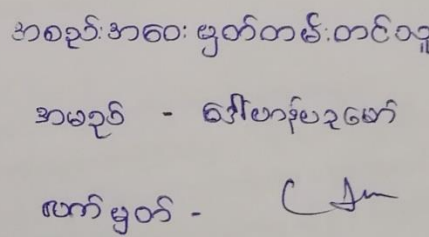 အစည်းအဝေး မှတ်တမ်းတင်သူ
အမည် - ဒေါ်ဟန်ပဒုမ္မော်
လက်မှတ် -